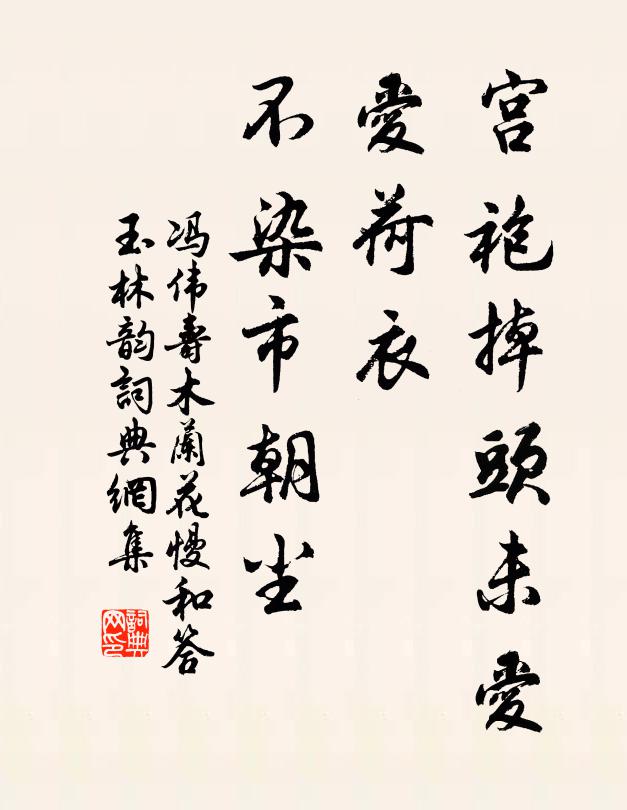 宫袍掉頭未愛
愛荷衣
不染市朝尘
冯伟壽木蘭花慢和答
玉林韵詞典網集
詞典网印